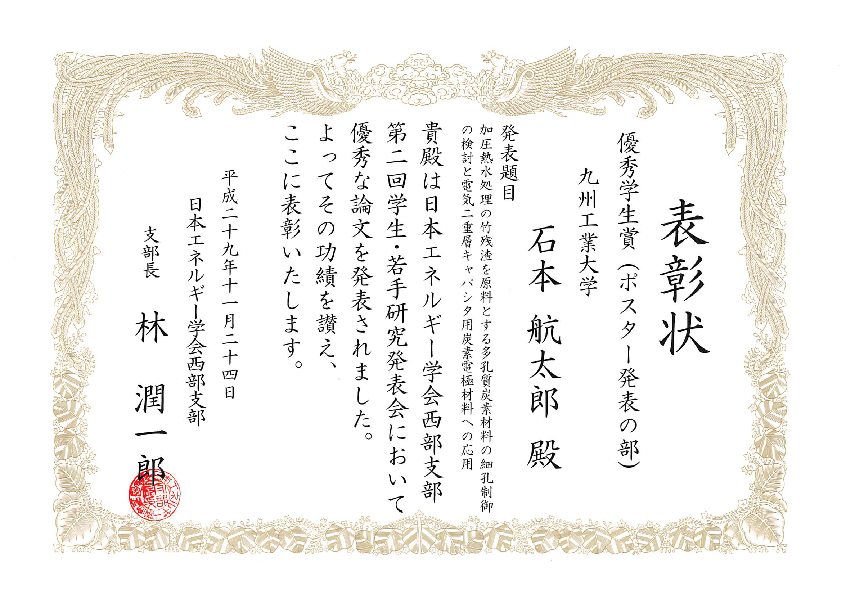 表彰状
優秀学生賞（ポスター発表の部）
九州工業大学
石本 航太郎 殿
発表題目
加圧熱水処理の竹残渣を原料とする多孔質炭素材料の細孔制御
の検討と電気二重層キャパシタ用炭素電極材料への応用
貴殿は日本エネルギー学会西部支部
第二回学生・若手研究発表会において
優秀な論文を発表されました。
よってその功績を讃え、
ここに表彰いたします。
平成二十九年十一月二十四日
日本エネルギー学会西部支部
支部長 林 潤一郎